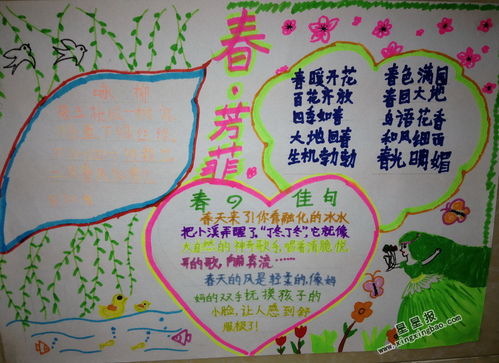 春·芳菲
咏柳
春暖开花 春色满园
百花齐放 春回大地
四季如春 鸟语花香
大地回春 和风细雨
生机勃勃 春光明媚
春の佳句
春天来了!你看融化的冰水
把小溪弄醒了"丁冬、丁冬",它就像
大自然的神奇歌手,唱着清脆悦
耳的歌,向前奔流……
春天的风是轻柔的,像妈
妈的双手抚摸孩子的
小脸,让人感到舒
服极了!
星星报
www.xingxingbao.com